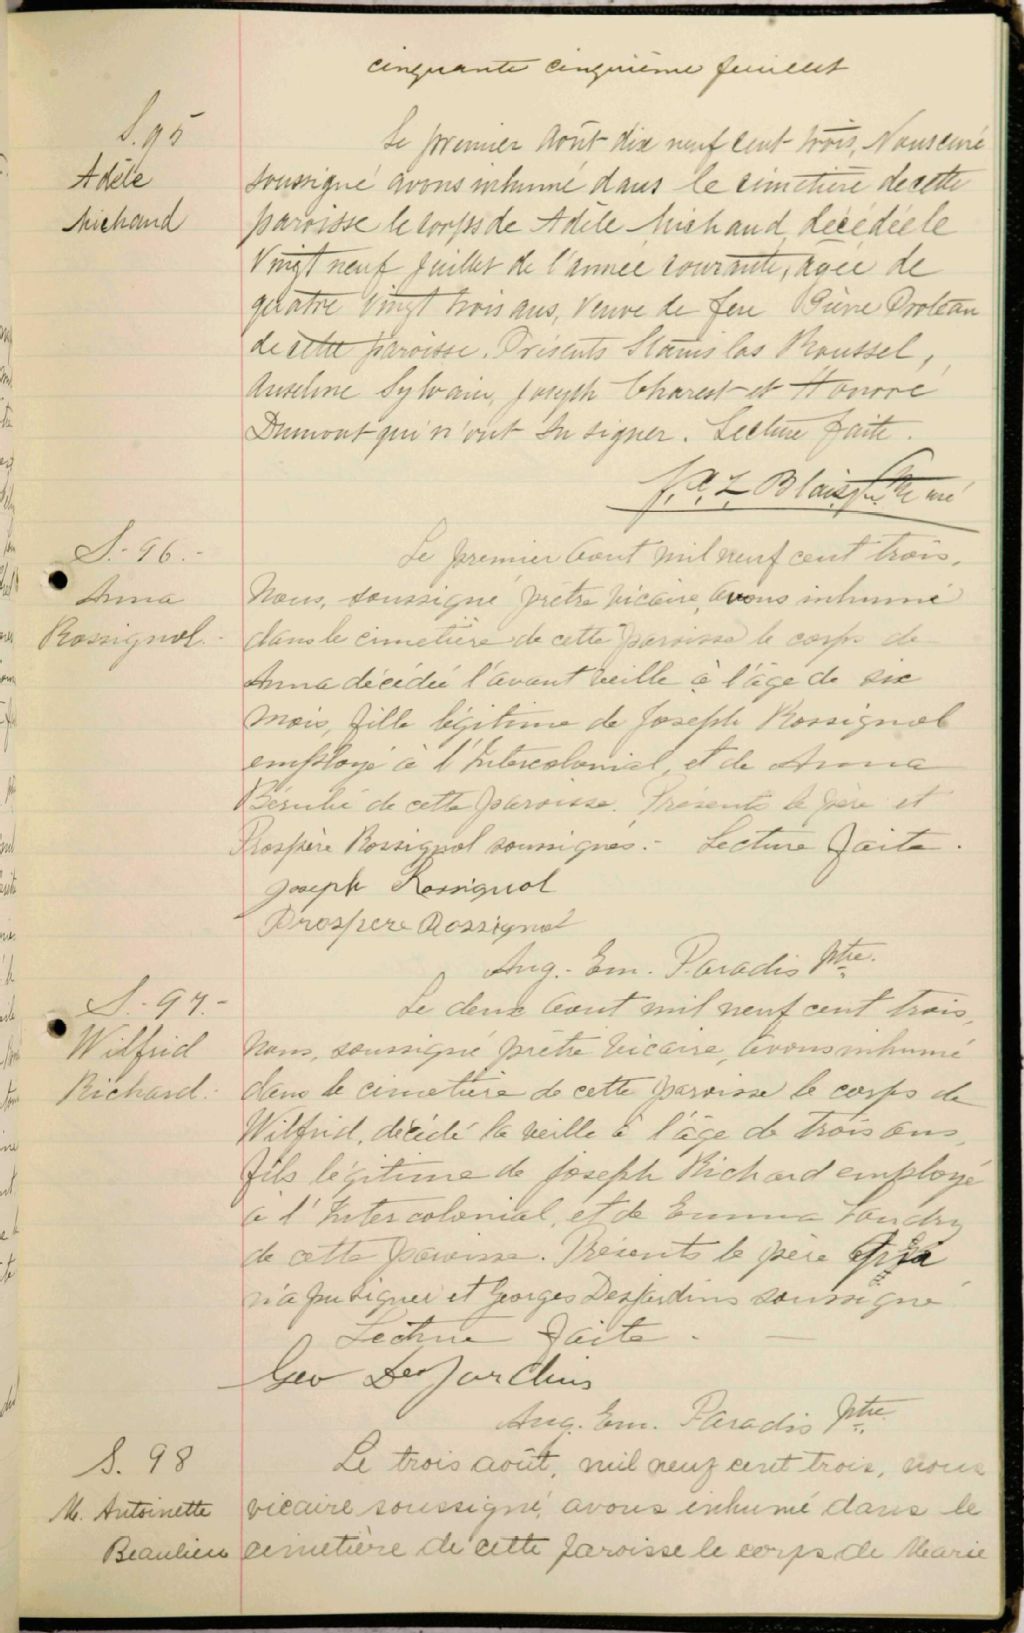 cinquante cinquième feuillet
S. 95
Adèle
Michaud
Le premier Août dix neuf cent trois, Nous curé
soussigné avons inhumé dans le cimetière de cette
paroisse le corps de Adèle Michaud décédée le
Vingt neuf Juillet de l'année courante, agée de
quatre vingt trois ans, Veuve de feu Pierre Proteau
de cette paroisse. Présents Stanislas Roussel,
Anselme Sylvain, Joseph Charest et Honoré
Dumont qui n'ont su signer. Lecture faite.
J. A. L. Blais Ptre curé
S.- 96.-
Anna
Rossignol.-
Le premier Aout mil neuf cent trois,
Nous, soussigné prêtre vicaire, avons inhumé
dans le cimetière de cette paroisse le corps de
Anna décédée l'avant veille à l'âge de six
mois, fille légitime de Joseph Rossignol
employé à l'Intercolonial, et de Anna
Bérubé de cette paroisse. Présents le père et
Prospère Rossignol soussignés.- Lecture faite.
Joseph Rossignol
Prospere Rossignol
Aug.- Em. Paradis Ptre.
S.- 97.-
Wilfrid
Richard.-
Le deux Aout mil neuf cent trois,
Nous, soussigné prêtre vicaire, avons inhumé
dans le cimetière de cette paroisse le corps de
Wilfrid, décédé la veille à l'âge de trois ans,
fils légitime de Joseph Richard employé
à l'Intercolonial, et de Emma Landry
de cette paroisse. Présents le père qui
n'a pu signer et Georges Desjardins soussigné
Lecture faite. —
Geo DesJardins
Aug. Em. Paradis Ptre.
S. 98
M. Antoinette
Beaulieu
Le trois août, mil neuf cent trois, nous
vicaire soussigné, avons inhumé dans le
cimetière de cette paroisse le corps de Marie